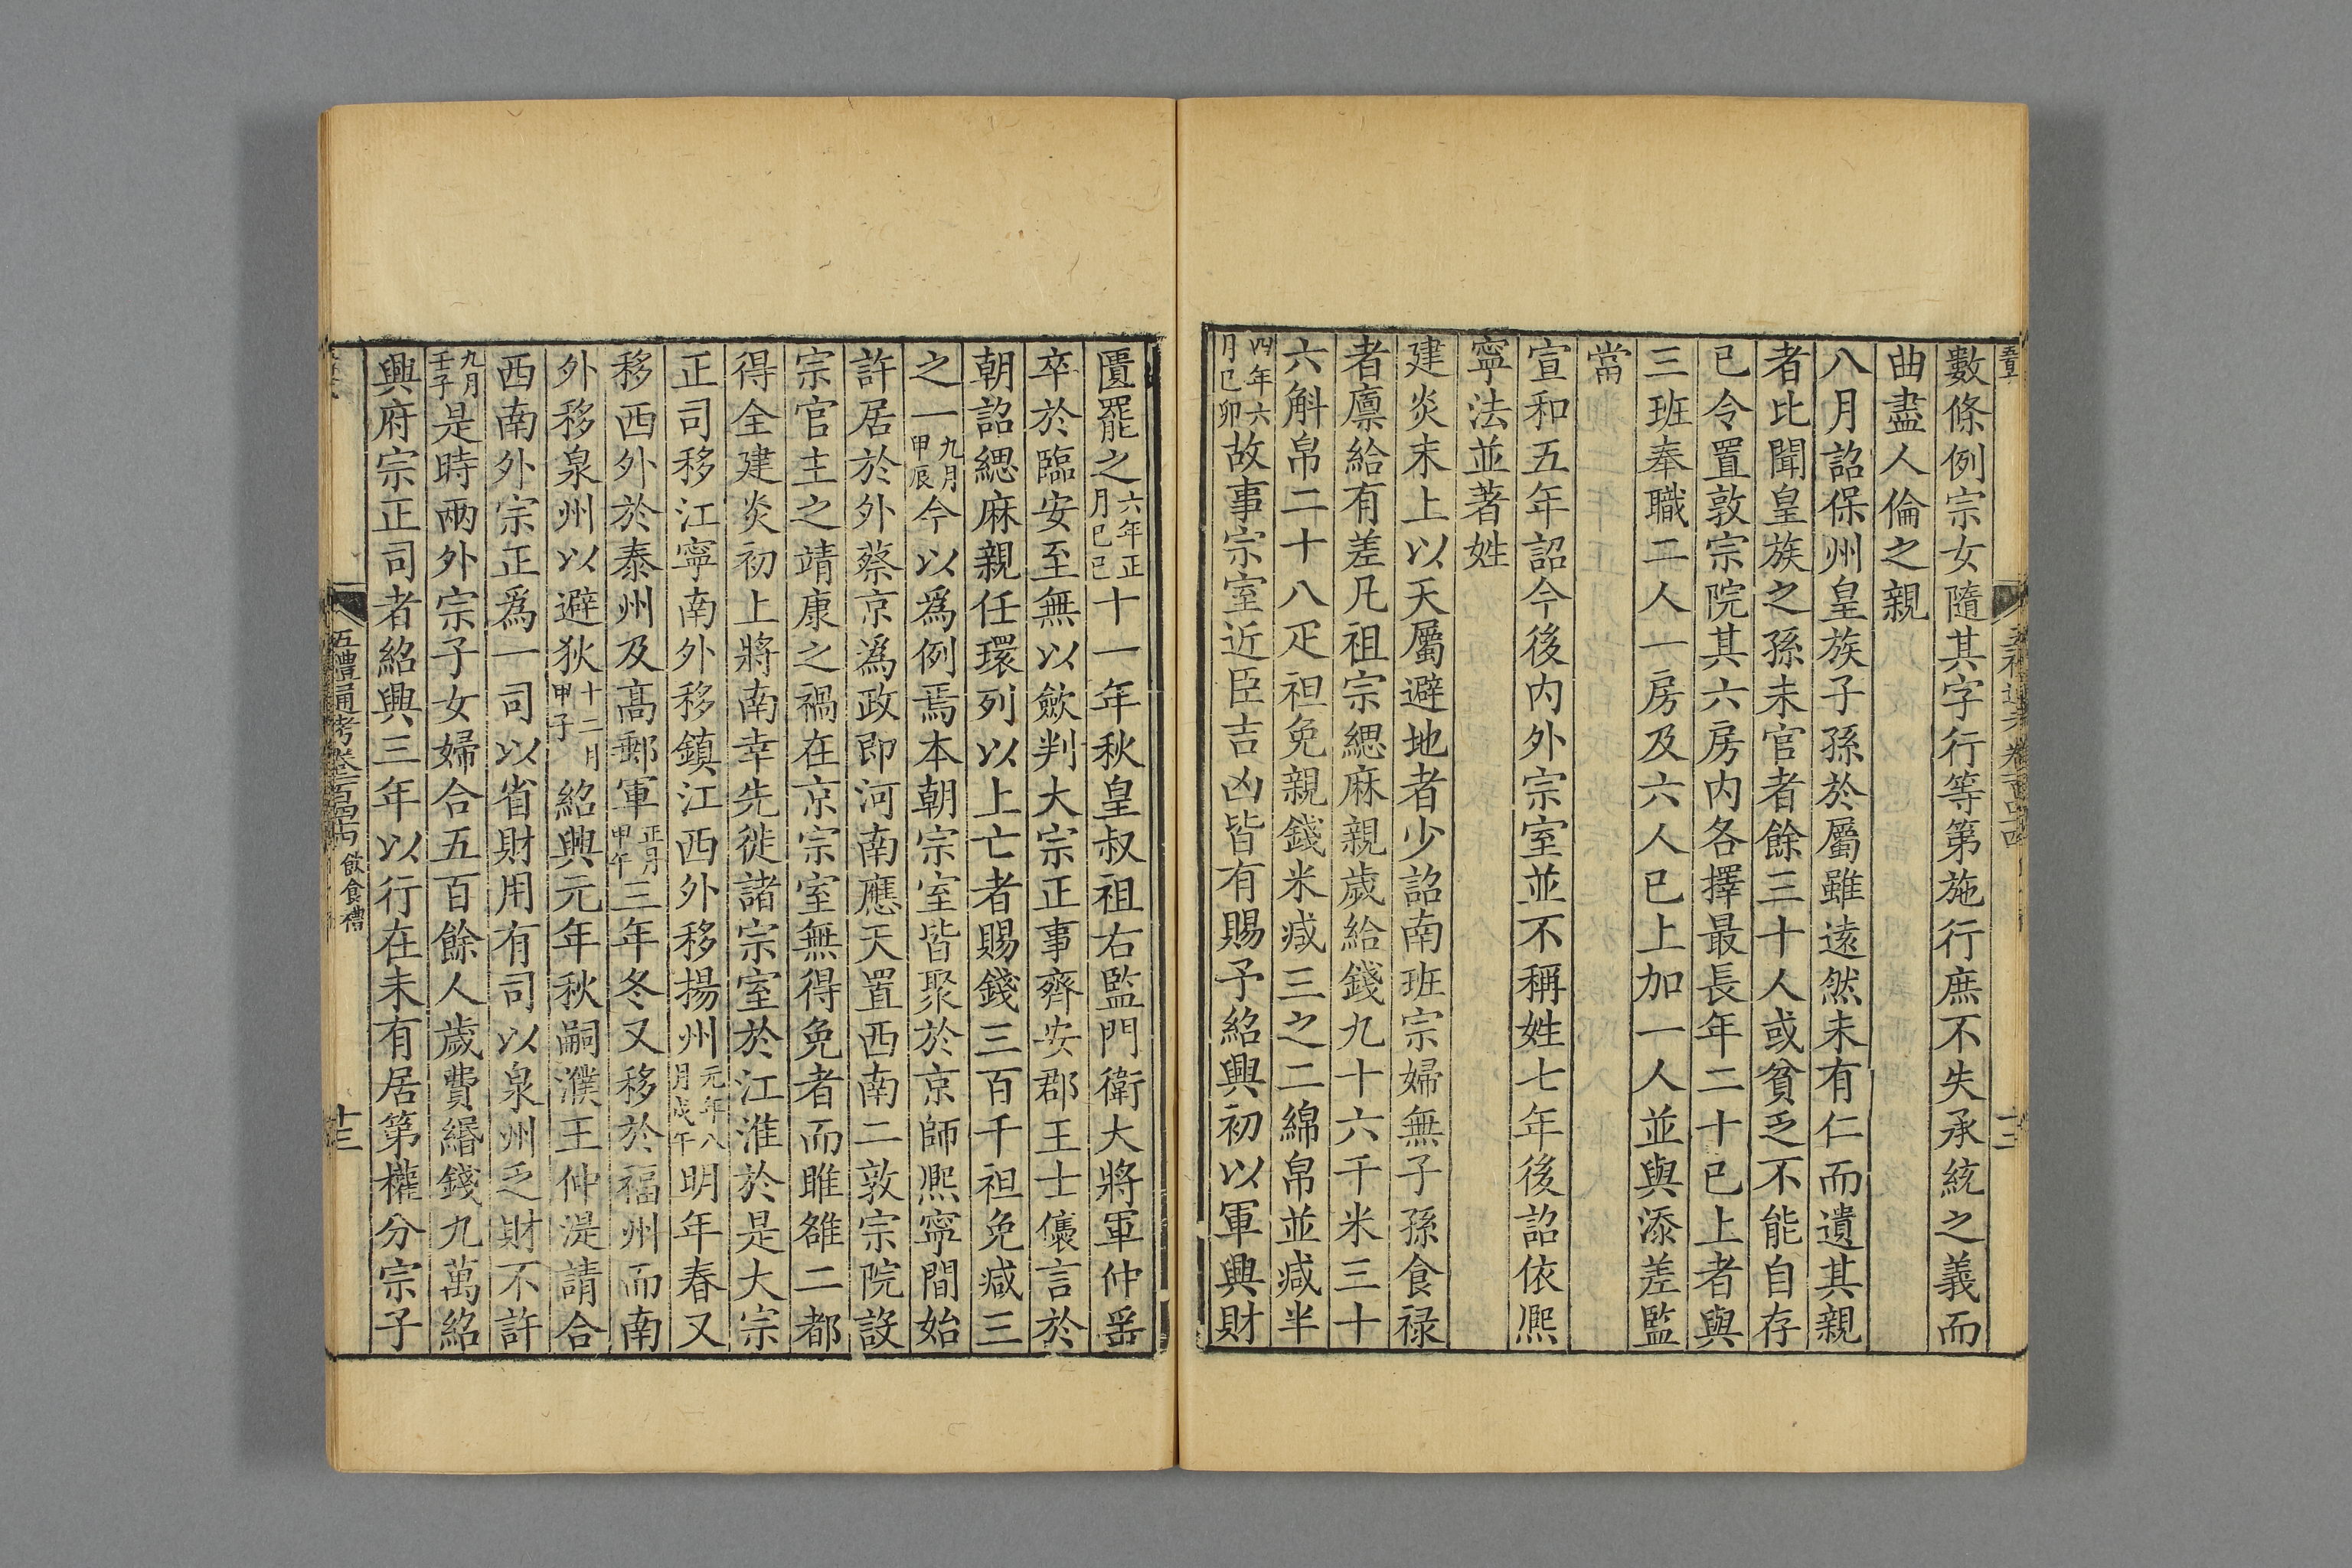 數條例宗女隨其字行等第施行庶不失承統之義而
曲盡人倫之親
八月詔保州皇族子孫於屬雖遠然未有仁而遺其親
者比聞皇族之孫未官者餘三十人或貧乏不能自存
已令置敦宗院其六房内各擇最長年二十已上者與
三班奉職二人一房及六人已上加一人並與添差監
當
宣和五年詔今後内外宗室並不稱姓七年後詔依熈
寧法並著姓
建炎末上以天屬避地者少詔南班宗婦無子孫食禄
者廪給有差凡祖宗緦麻親歲給錢九十六千米三十
六斛帛二十八疋袒免親錢米减三之二綿帛並减半
四年六月己卯故事宗室近臣吉凶皆有賜予紹興初以軍興財
匱罷之六年正月己巳十一年秋皇叔祖右監門衛大將軍仲㟧
卒於臨安至無以歛判大宗正事齊安郡王士㒟言於
朝詔緦麻親任環列以上亡者賜錢三百千袒免减三
之一九月甲辰今以爲例焉本朝宗室皆聚於京師熈寧間始
許居於外蔡京爲政即河南應天置西南二敦宗院設
宗官主之靖康之禍在京宗室無得免者而睢雒二都
得全建炎初上將南幸先徙諸宗室於江淮於是大宗
正司移江寧南外移鎮江西外移揚州元年八月戊午明年春又
移西外於泰州及高郵軍正月甲午三年冬又移於福州而南
外移泉州以避狄十二月甲子紹興元年秋嗣濮王仲湜請合
西南外宗正爲一司以省財用有司以泉州乏財不許
九月壬子是時兩外宗子女婦合五百餘人歲費緡錢九萬紹
興府宗正司者紹興三年以行在未有居第權分宗子
五禮通考卷一百四十四 飲食禮
十三